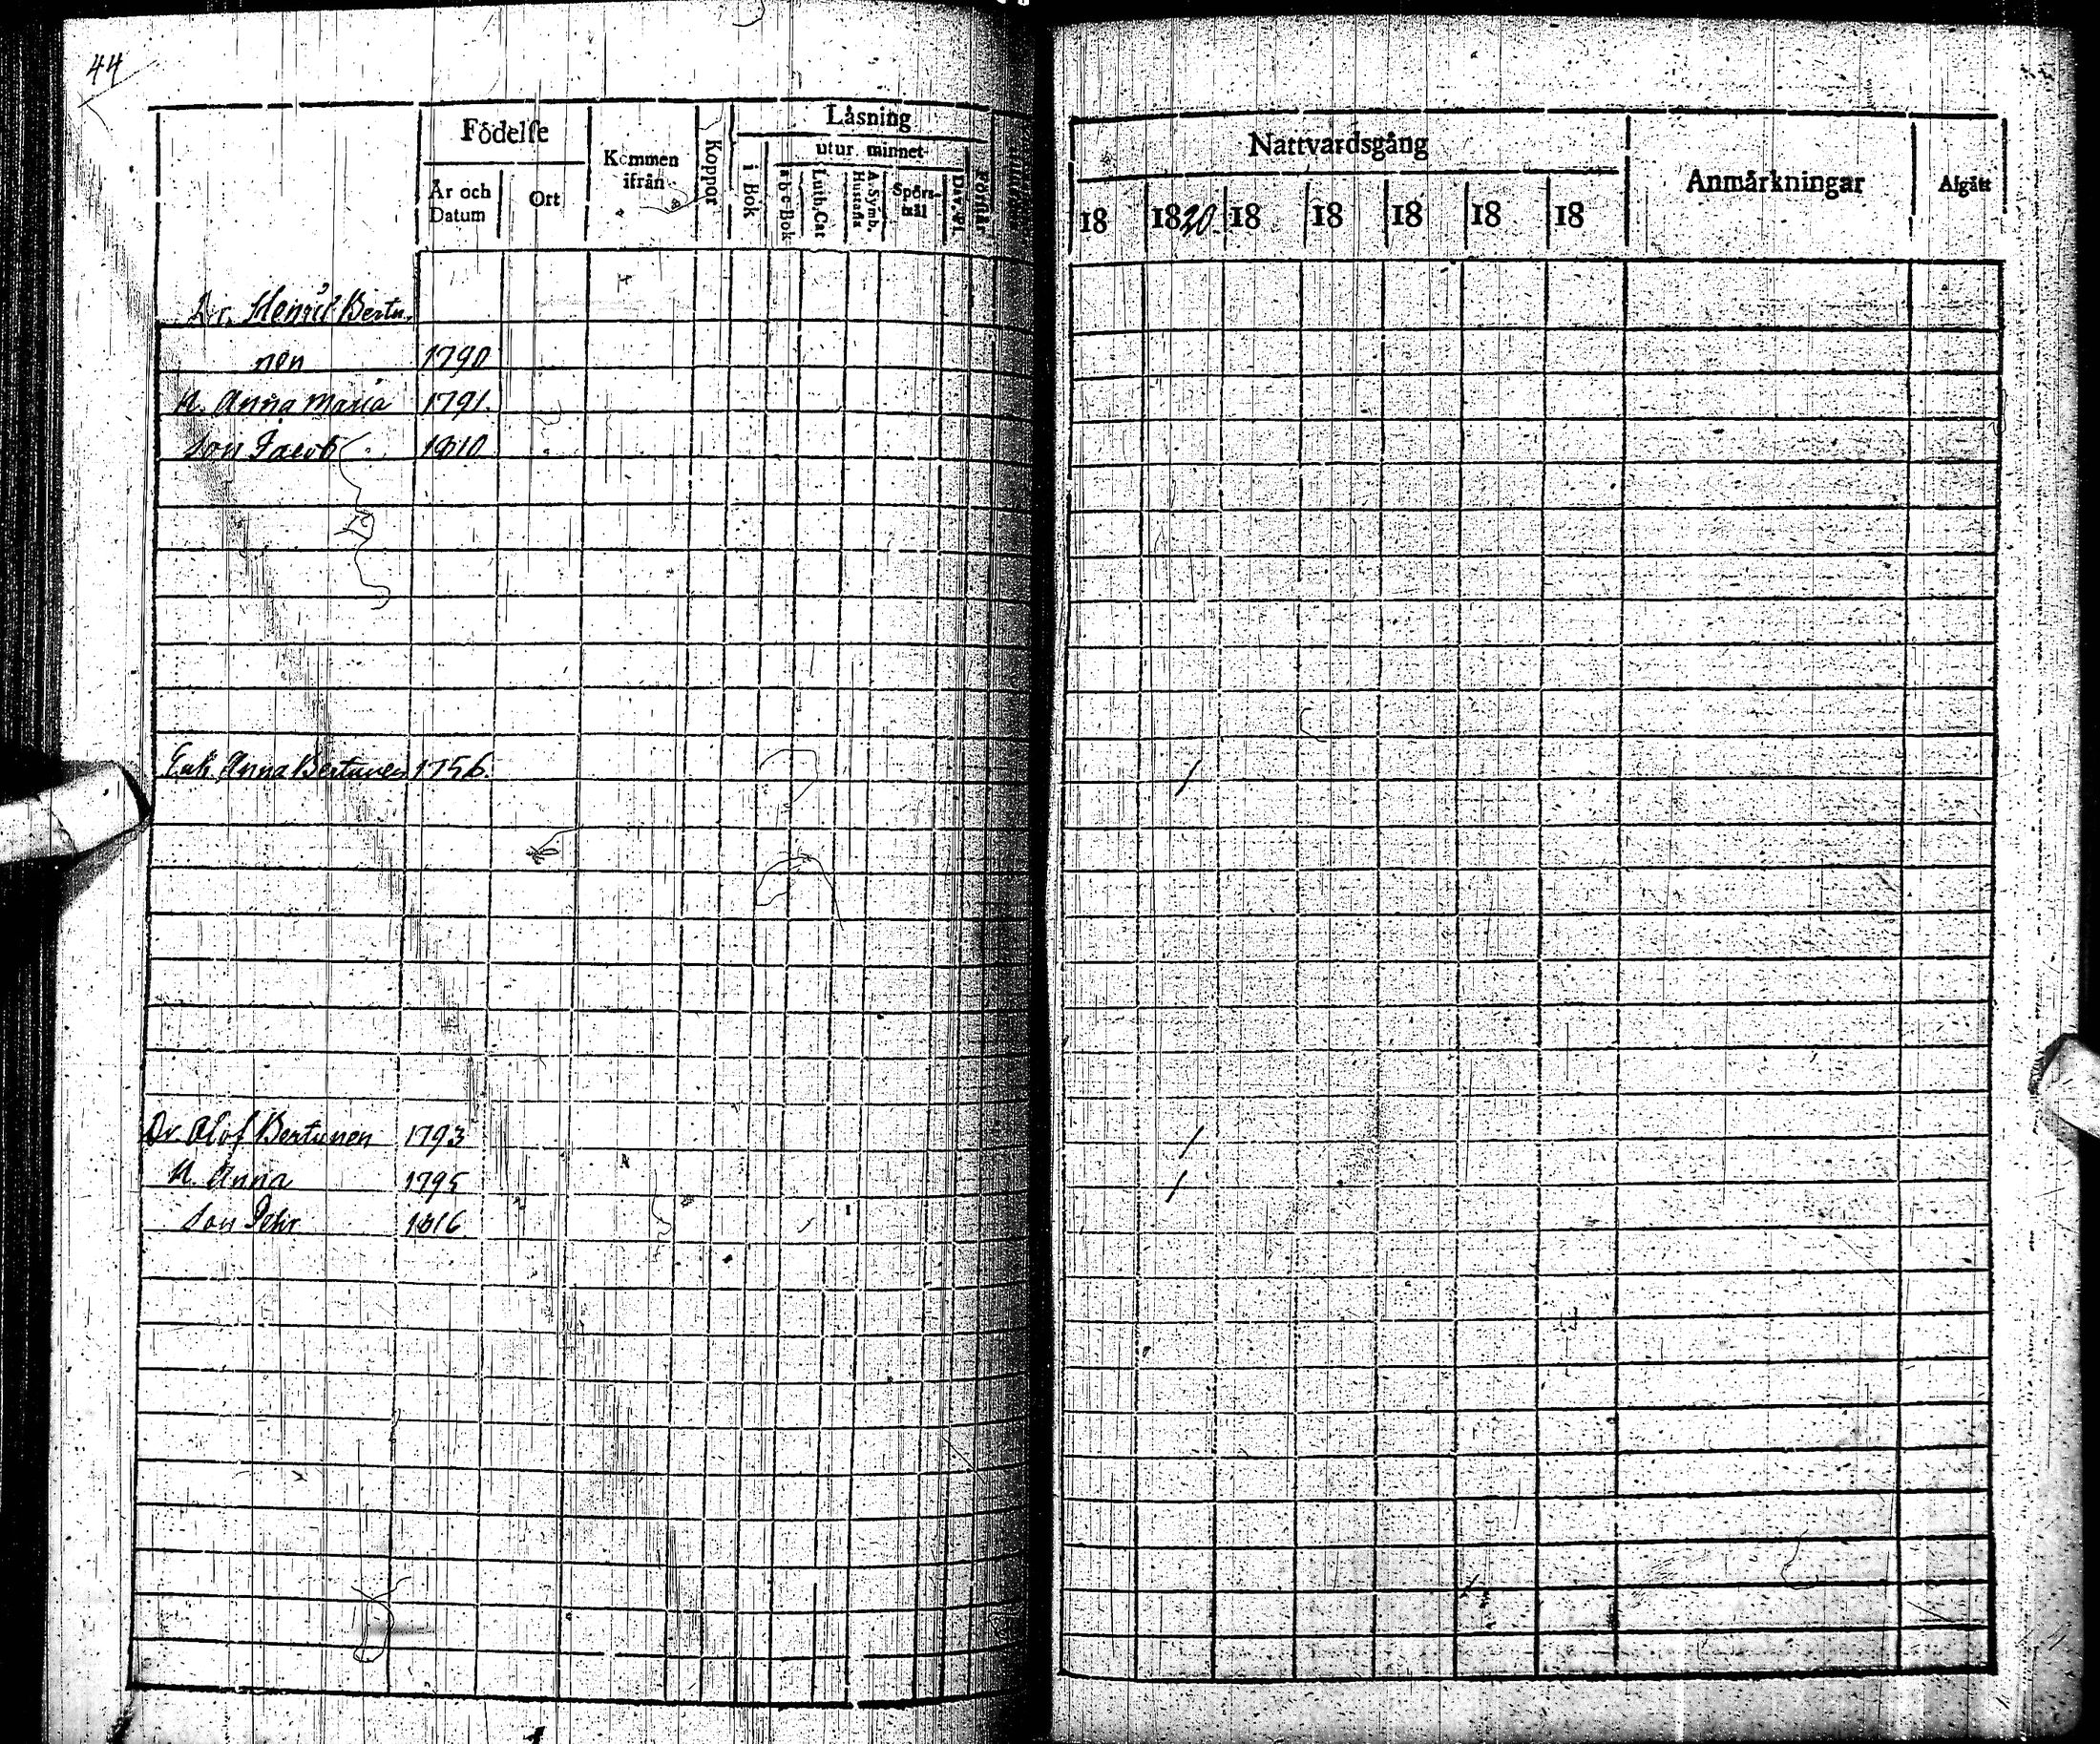 44
Födelse
Kommen ifrån
Koppor
Läsning
utur minnet
År och Datum
Ort
i Bok
a b c-Bok
Luth. Cat
A. Symb. Hustafla
Spörsmål
Dav. Ps.
Förstår
Nattvardsgång
Anmärkningar
Afgått
18 1820. 18 18 18 18 18
Dr. Henric Bertu-
nen 1790
H. Anna Maria 1791.
Son Jacob 1810
Enk. Anna Bertunen 1756. /
Dr. Olof Bertunen 1793 /
H. Anna 1795 /
Son Pehr 1816